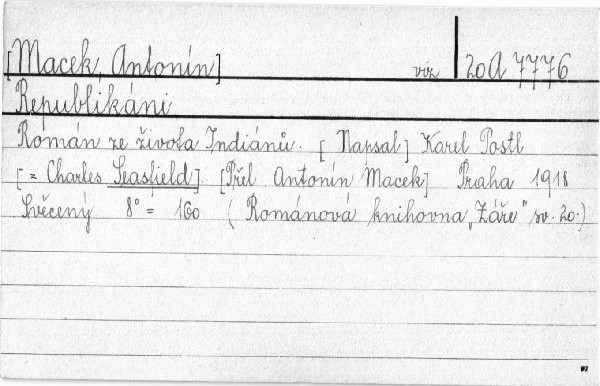 [Macek, Antonín] viz 20A 7776
Republikáni
Román ze života Indiánů. [Napsal] Karel Postl
[= Charles Seasfield]. [Přel Antonín Macek] Praha 1918
Svěcený 8° = 160 (Románová knihovna „Záře" sv. 20.)